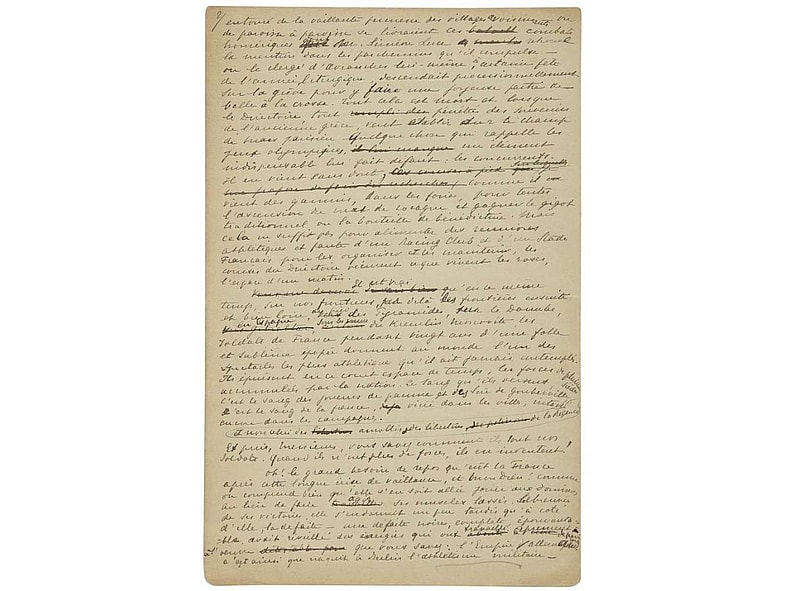 9/ entouré de la vaillante jeunesse des villages voisinants ou
de paroisse à paroisse se livraient ces combats
homériques dont Mr. Siméon Luce a retrouvé
la mention dans les parchemins qu'il compulse —
où le clergé d'Avranches lui-même à certaine fête
de l'année liturgique descendait processionnellement
sur la grève pour y faire une joyeuse partie de
balle à la crosse. Tout cela est mort et lorsque
le Directoire, tout rempli des pénétré des souvenirs
de l'ancienne grèce, veut établir sur le champ
de mars parisien quelque chose qui rappelle les
jeux olympiques, il lui manque un élément
indispensable lui fait défaut : les concurrents.
Il en vient sans doute, les courses à pied comme il
vient des gamins, dans les foires, pour tenter
l'ascension du mat de cocagne et gagner le gigot
traditionnel ou la bouteille de bénédictine. Mais
cela ne suffit pas pour alimenter des réunions
athlétiques et faute d'une Racing Club et d'un Stade
Français pour les organiser et les maintenir, les
courses du Directoire vécurent ce que vivent les roses,
l'espace d'un matin.
Il est vrai qu'en ce même
temps, sur nos frontières, par delà les frontières ensuite
et bien loin, en Espagne, auprès des Pyramides, sur le Danube,
sous les murs du Kremlin moscovite les
soldats de France pendant vingt ans d'une folle
et sublime épopée donnent au monde l'un des
spectacles les plus athlétiques qu'il ait jamais contemplé.
Ils épuisent en ce court espace de temps, les forces
accumulées par la nation. Le sang qu'ils versent
c'est le sang des joueurs de paume et des Sire de Gouberville
c'est le sang de la france, vicié dans les villes, intact
encore dans les campagnes.
et non celui des amollis, des libertins, de la Régence
Et puis, Messieurs, vous savez comment ils sont nos
soldats. Quand ils n'ont plus de forces, ils en inventent !
Oh ! le grand besoin de repos qu'eut la France
après cette longue crise de vaillance, et mon Dieu ! comme
on comprend bien qu'elle s'en soit allée jouer aux dominos
au lieu de faire agir ses muscles lassés. Labrenoir
de ses victoires, elle s'endormit un peu tandis qu'à côté
d'elle, la défaite — une défaite noire, complète, épouvanta-
ble, avait réveillé des énergies qui ont travaillé
l'œuvre que vous savez : l'Empire allemand
c'est ainsi que naquit à Berlin l'athlétisme militaire —